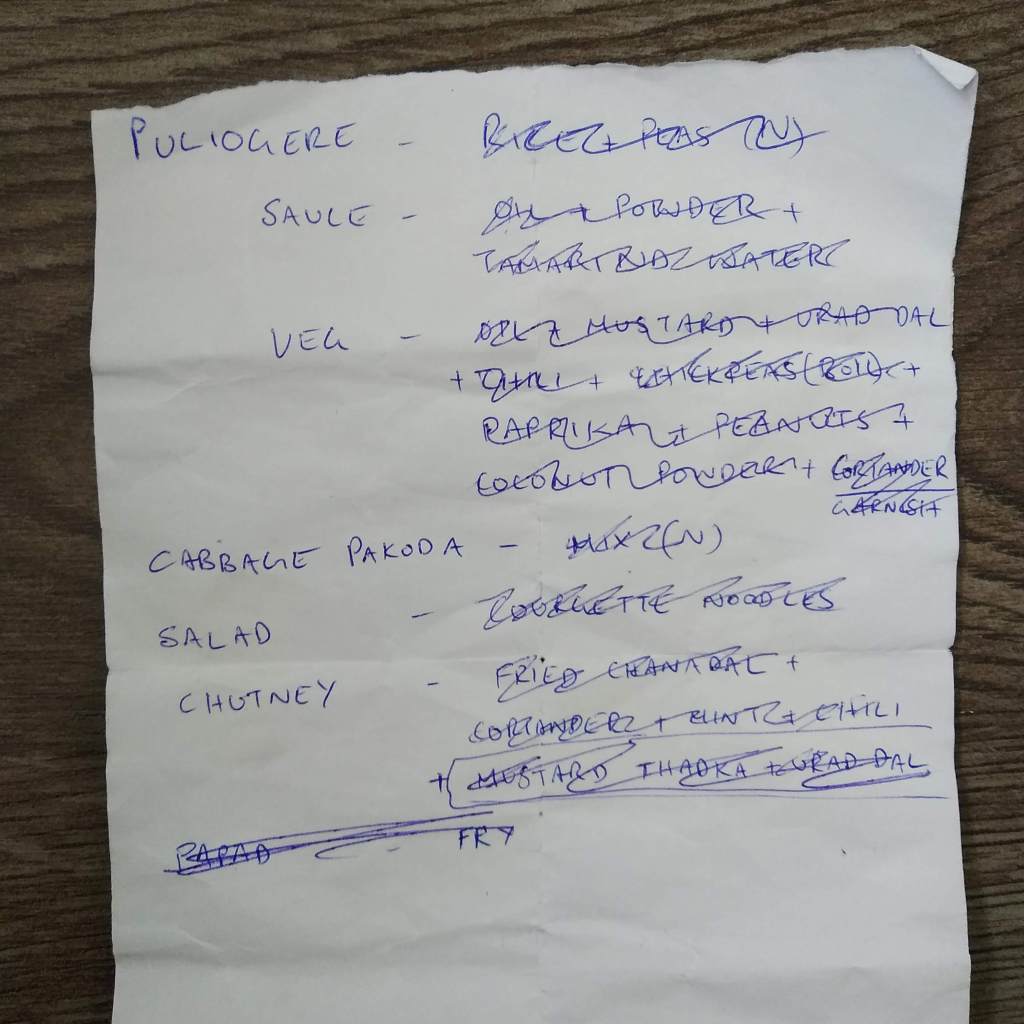 PULIOGERE - RICE + PEAS (N)
SAUCE - OIL + POWDER +
TAMARIND WATER
VEG - OIL + MUSTARD + URAD DAL
+ CHILI + CHICKPEAS (BOIL) +
PAPRIKA + PEANUTS +
COCONUT POWDER + CORIANDER
GARNISH
CABBAGE PAKODA - MIX (N)
SALAD - COURGETTE NOODLES
CHUTNEY - FRIED CHANA DAL +
CORIANDER + MINT + CHILI
+ MUSTARD THADKA + URAD DAL
PAPAD - FRY